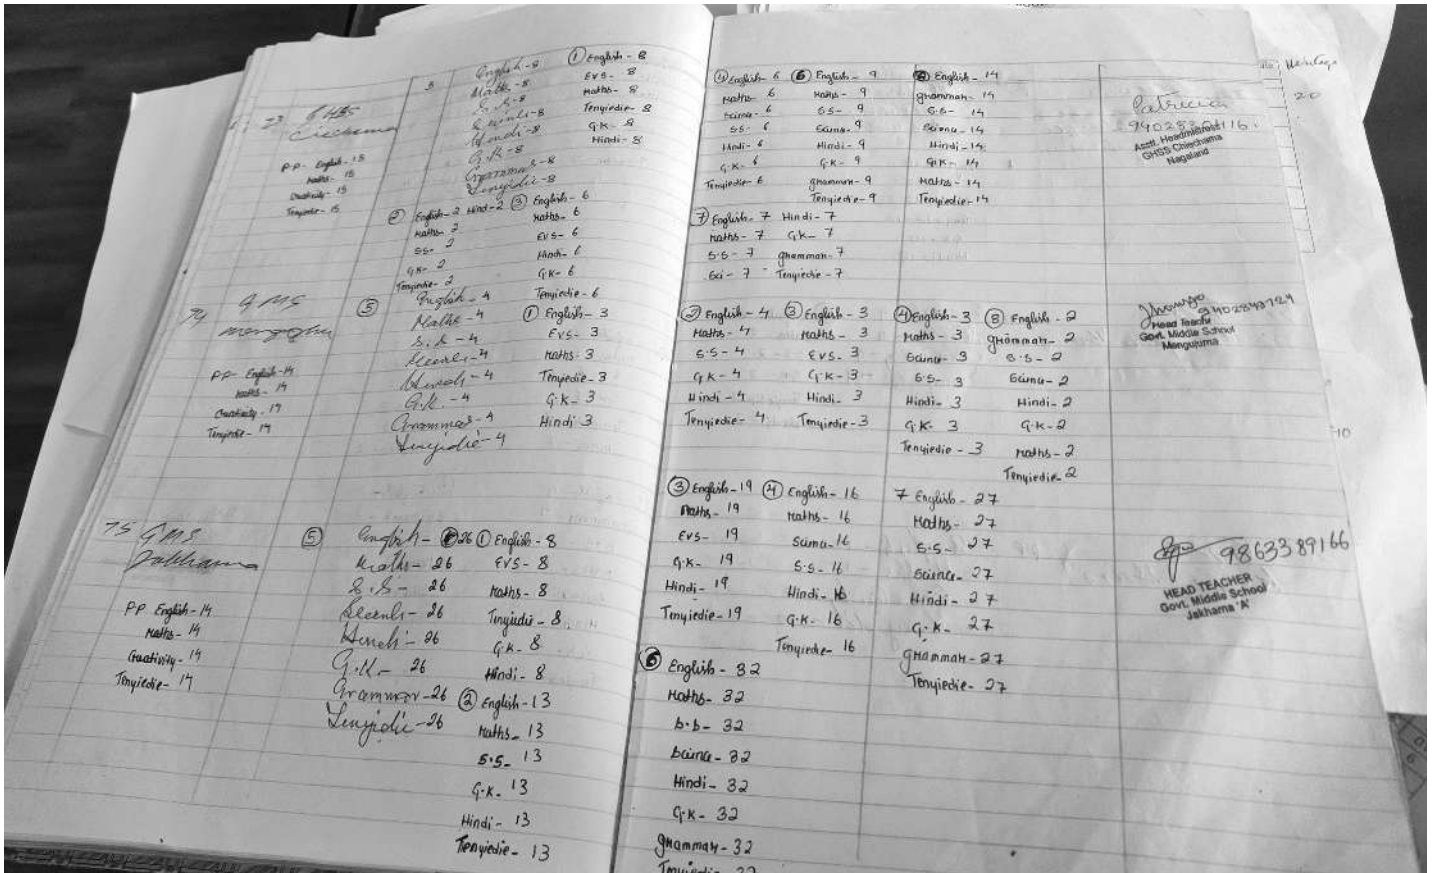 23 GHSS
Ciechama
PP- English - 15
Maths - 15
Creativity - 15
Tenyidie - 15
5
English - 8
Maths - 8
S.S - 8
Hindi - 8
G.K - 8
Grammar - 8
Tenyidie - 8
① English - 8
EVS - 8
Maths - 8
Tenyiedie - 8
G.K - 8
Hindi - 8
② English - 2 Hindi - 2
Maths - 2
SS - 2
GK - 2
Tenyiedie - 2
③ English - 6
Maths - 6
EVS - 6
Hindi - 6
G.K - 6
Tenyiedie - 6
④ English - 6
Maths - 6
Science - 6
SS - 6
Hindi - 6
G.K - 6
Tenyiedie - 6
⑥ English - 9
Maths - 9
S.S - 9
Science - 9
Hindi - 9
G.K - 9
grammar - 9
Tenyiedie - 9
⑧ English - 14
grammar - 14
S.S - 14
Science - 14
Hindi - 14
G.K - 14
Maths - 14
Tenyiedie - 14
⑦ English - 7 Hindi - 7
Maths - 7 G.K - 7
S.S - 7 grammar - 7
Sci - 7 Tenyiedie - 7
Patricia
Asstt. Headmistress
GHSS Chiechama
Nagaland
20
74 GMS
PP - English - 14
Maths - 14
Creativity - 14
Tenyiedie - 14
⑤
English - 4
Maths - 4
S.S - 4
Science - 4
Hindi - 4
G.K. - 4
Grammar - 4
Tenyidie - 4
① English - 3
EVS - 3
Maths - 3
Tenyiedie - 3
G.K - 3
Hindi 3
② English - 4
Maths - 4
S.S - 4
G.K - 4
Hindi - 4
Tenyiedie - 4
③ English - 3
Maths - 3
EVS - 3
G.K - 3
Hindi - 3
Tenyiedie - 3
④ English - 3
Maths - 3
Science - 3
S.S - 3
Hindi - 3
G.K - 3
Tenyiedie - 3
⑧ English - 2
grammar - 2
S.S - 2
Science - 2
Hindi - 2
G.K - 2
Maths - 2
Tenyiedie - 2
Head Teacher
Govt. Middle School
Mengujuma
10
75 GMS
Jakhama
PP English - 14
Maths - 14
Creativity - 14
Tenyiedie - 14
⑤
English - 26
Maths - 26
S.S - 26
Science - 26
Hindi - 26
G.K - 26
Grammar - 26
Tenyidie - 26
① English - 8
EVS - 8
Maths - 8
Tenyiedie - 8
G.K - 8
Hindi - 8
② English - 13
Maths - 13
S.S - 13
G.K - 13
Hindi - 13
Tenyiedie - 13
③ English - 19
Maths - 19
EVS - 19
G.K - 19
Hindi - 19
Tenyiedie - 19
④ English - 16
Maths - 16
Science - 16
S.S - 16
Hindi - 16
G.K - 16
Tenyiedie - 16
7 English - 27
Maths - 27
S.S - 27
Science - 27
Hindi - 27
G.K - 27
grammar - 27
Tenyiedie - 27
⑥ English - 32
Maths - 32
S.S - 32
Science - 32
Hindi - 32
G.K - 32
grammar - 32
9863389166
HEAD TEACHER
Govt. Middle School
Jakhama 'A'